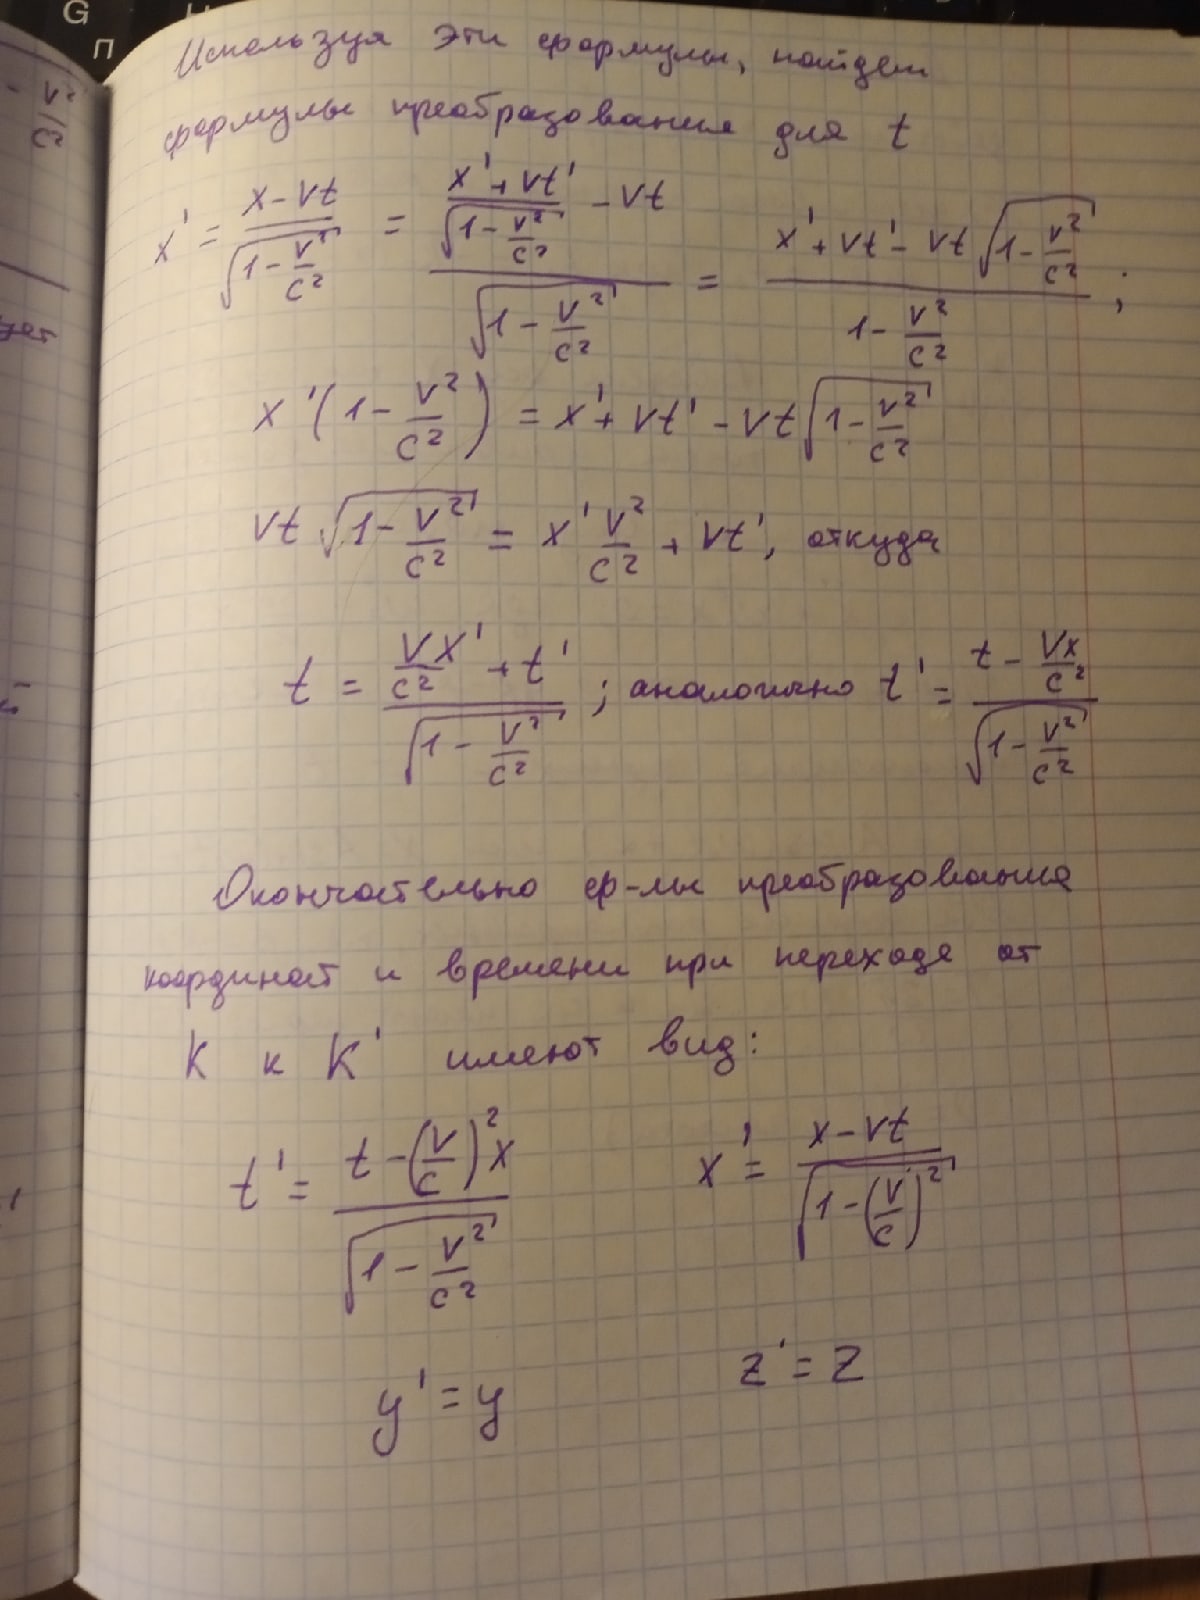 Используя эти формулы, найдем
формулы преобразования для t
x' = \frac{x - vt}{\sqrt{1 - \frac{v^2}{c^2}}} = \frac{\frac{x' + vt'}{\sqrt{1 - \frac{v^2}{c^2}}} - vt}{\sqrt{1 - \frac{v^2}{c^2}}} = \frac{x' + vt' - vt\sqrt{1 - \frac{v^2}{c^2}}}{1 - \frac{v^2}{c^2}} ;
x'(1 - \frac{v^2}{c^2}) = x' + vt' - vt\sqrt{1 - \frac{v^2}{c^2}}
vt\sqrt{1 - \frac{v^2}{c^2}} = x'\frac{v^2}{c^2} + vt', откуда
t = \frac{\frac{v}{c^2}x' + t'}{\sqrt{1 - \frac{v^2}{c^2}}} ; аналогично t' = \frac{t - \frac{vx}{c^2}}{\sqrt{1 - \frac{v^2}{c^2}}}
Окончательно ф-лы преобразования
координат и времени при переходе от
K к K' имеют вид:
t' = \frac{t - (\frac{v}{c})^2 x}{\sqrt{1 - \frac{v^2}{c^2}}} x' = \frac{x - vt}{\sqrt{1 - (\frac{v}{c})^2}}
y' = y z' = z